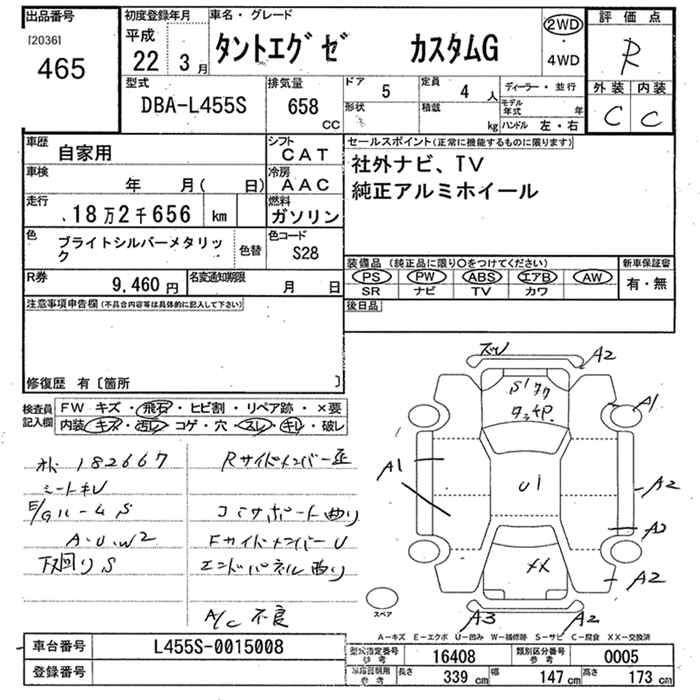 出品番号
[2036]
465
初度登録年月
平成
22年 3月
車名・グレード
タントエグゼ カスタムG
2WD
・
4WD
評価点
R
外装 内装
C C
型式
DBA-L455S
排気量
658
CC
ドア
5
定員
4人
形状
積載
kg
ディーラー・並行
モデル年式 年
ハンドル 左・右
車歴
自家用
シフト
CAT
車検
年 月( 日)
冷房
AAC
走行
18万2千656 km
燃料
ガソリン
色
ブライトシルバーメタリック
色替
色コード
S28
R券
9,460円
名変通知期限
月 日
セールスポイント(正常に機能するものに限ります)
社外ナビ、TV
純正アルミホイール
装備品(純正品に限り○をつけてください)
PS PW ABS エアB AW
SR ナビ TV カワ
新車保証書
有・無
後日品
注意事項申告欄(不具合内容等は具体的に記入して下さい)
修復歴 有〔箇所 〕
検査員
記入欄
FW キズ・飛石・ヒビ割・リペア跡・×要
内装 キズ・汚レ・コゲ・穴・スレ・キレ・破レ
182667
シートキレ
E/Gルーム S
A・U・W2
下回り S
Rサイドメンバー
コアサポート曲り
Fサイドメンバー U
エンドパネル曲り
A/C 不良
A2
A1
A1
U1
A2
A2
XX
A2
A3
A2
スペア
A-キズ E-エクボ U-凹み W-補修跡 S-サビ C-腐食 XX-交換済
車台番号
L455S-0015008
登録番号
型式指定番号
参考
16408
類別区分番号
参考
0005
参考
長さ
339 cm
幅
147 cm
高さ
173 cm